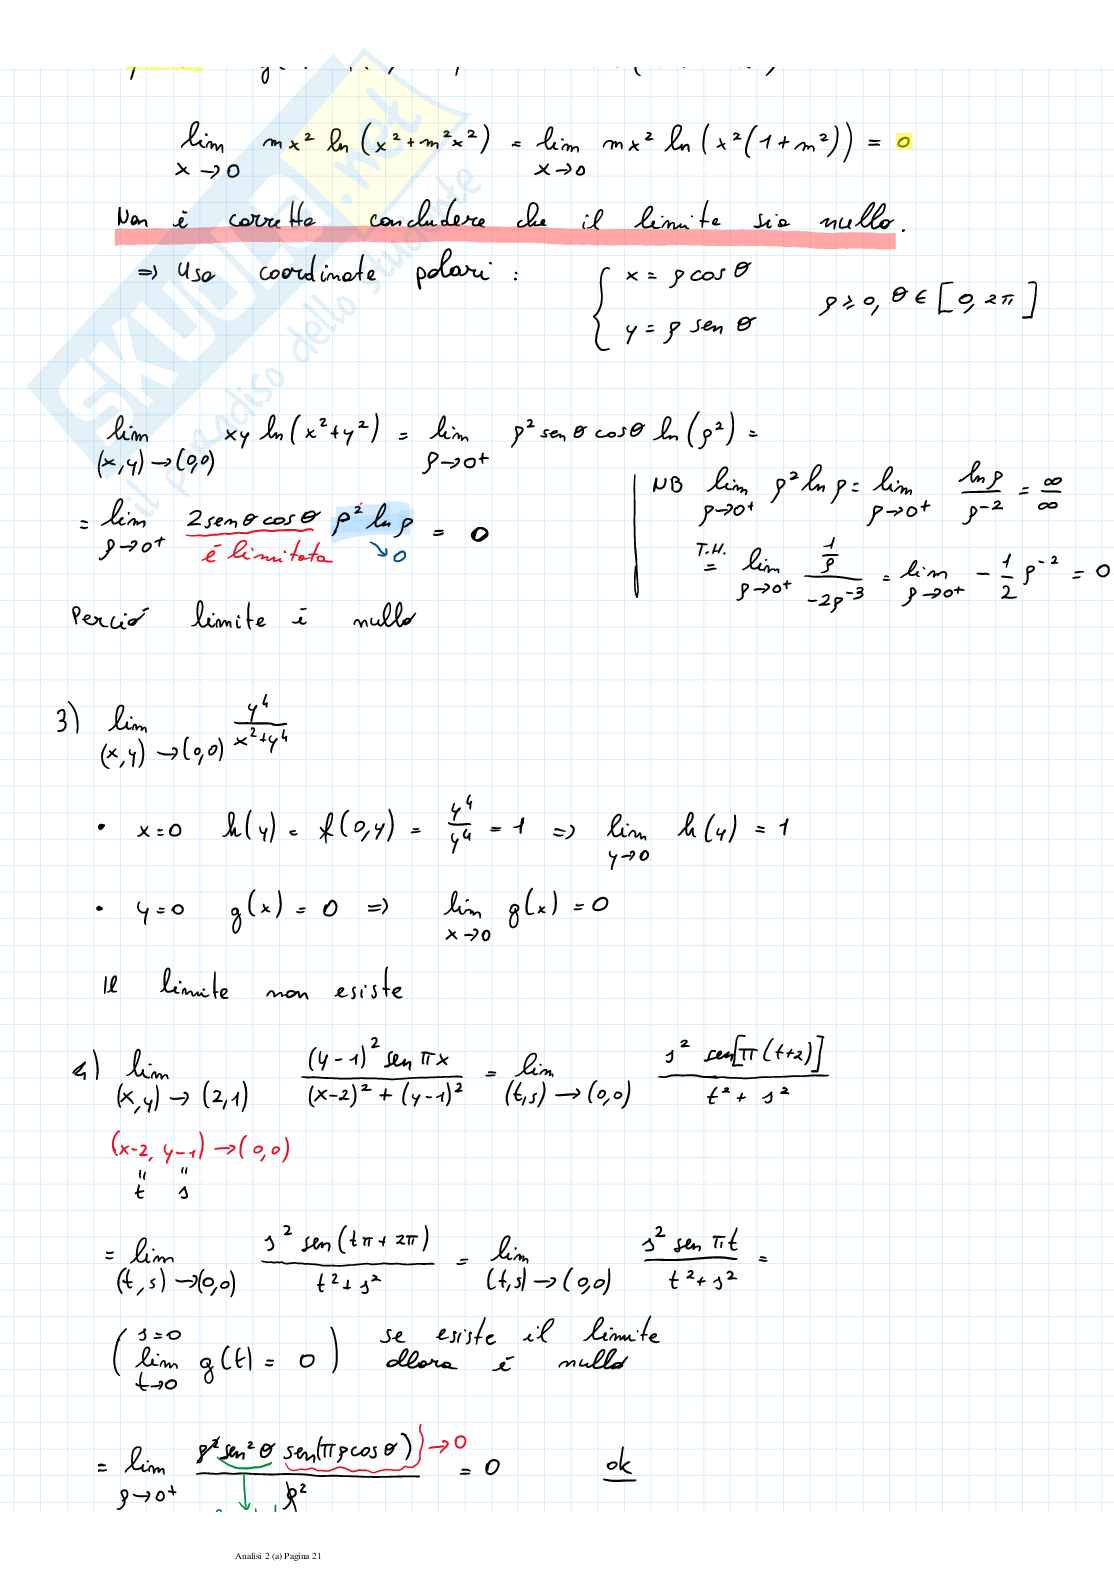 lim x→0 mx² ln(x²+m²x²) = lim x→0 mx² ln(x²(1+m²)) = 0
Non è corretto concludere che il limite sia nullo.
⇒ Uso coordinate polari : { x = ρ cos θ
y = ρ sen θ
ρ ≥ 0, θ ∈ [0, 2π]
lim (x,y)→(0,0) xy ln(x²+y²) = lim ρ→0⁺ ρ² sen θ cos θ ln(ρ²) =
= lim ρ→0⁺ 2 sen θ cos θ ρ² ln ρ = 0
è limitata ↘0
NB lim ρ→0⁺ ρ² ln ρ = lim ρ→0⁺ ln ρ / ρ⁻² = ∞/∞
T.H. = lim ρ→0⁺ (1/ρ) / (-2ρ⁻³) = lim ρ→0⁺ - 1/2 ρ⁻² = 0
Perciò limite è nullo
3) lim (x,y)→(0,0) y⁴ / (x²+y⁴)
• x=0 h(y) = f(0,y) = y⁴/y⁴ = 1 ⇒ lim y→0 h(y) = 1
• y=0 g(x) = 0 ⇒ lim x→0 g(x) = 0
Il limite non esiste
4) lim (x,y)→(2,1) (y-1)² sen πx / ((x-2)² + (y-1)²) = lim (t,s)→(0,0) s² sen[π(t+2)] / (t²+s²)
(x-2, y-1)→(0,0)
" "
t s
= lim (t,s)→(0,0) s² sen(tπ+2π) / (t²+s²) = lim (t,s)→(0,0) s² sen πt / (t²+s²) =
( s=0 lim t→0 g(t) = 0 ) se esiste il limite
allora è nullo
= lim ρ→0⁺ ρ² sen² θ sen(πρ cos θ) / ρ² = 0 ok
→0
Analisi 2 (a) Pagina 21
SKUOLA.net
il paradiso dello studente